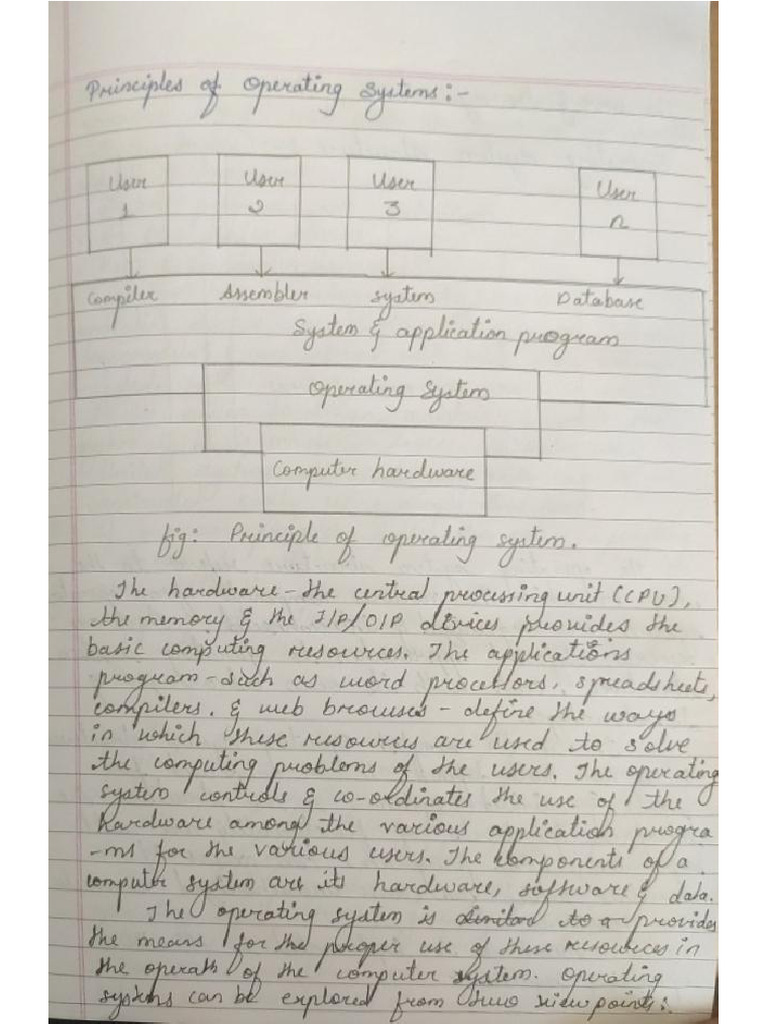 Principles of Operating Systems:-
User 1
User 2
User 3
User n
Compiler Assembler system Database
System & application program
Operating System
Computer hardware
fig: Principle of operating system.
The hardware - the central processing unit (CPU),
the memory & the I/P/O/P devices provides the
basic computing resources. The applications
program - such as word processors, spreadsheets,
compilers, & web browses - define the ways
in which these resources are used to solve
the computing problems of the users. The operating
system controls & co-ordinates the use of the
hardware among the various application progra
-ms for the various users. The components of a
computer system are its hardware, software & data.
The operating system is provides
the means for the proper use of these resources in
the of the computer system. operating
systems can be explored from two viewpoints: